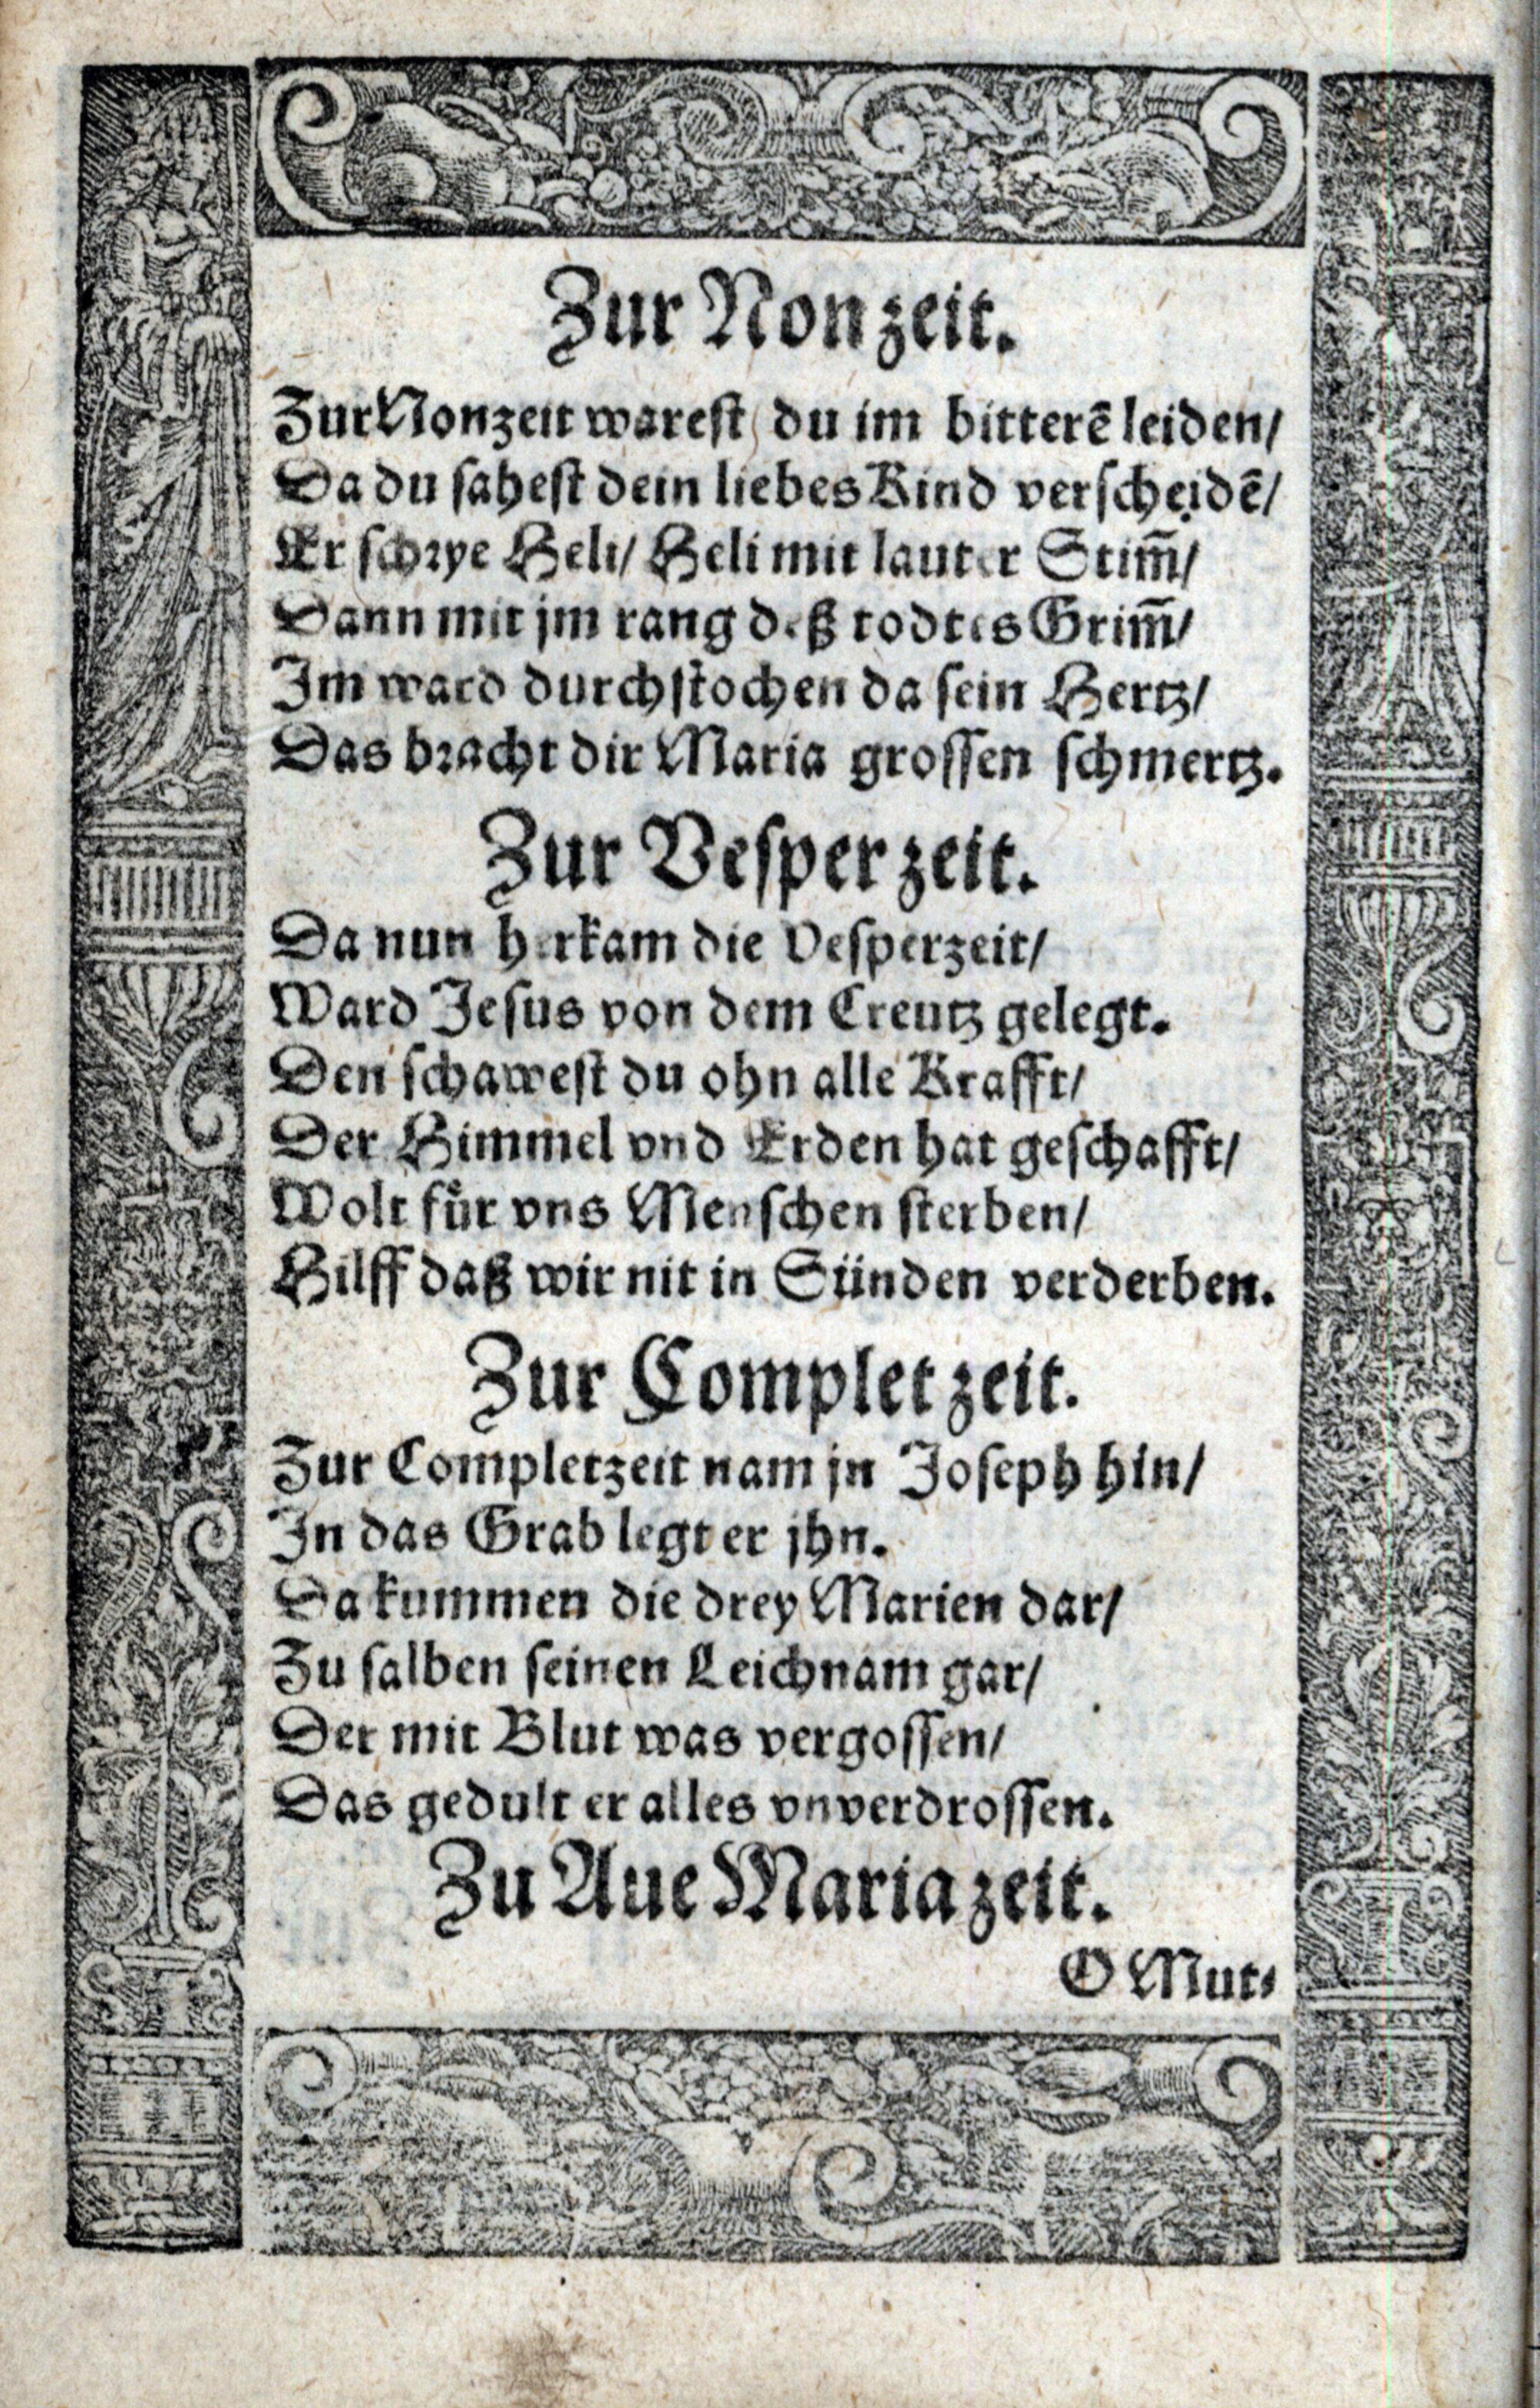 Zur Nonzeit.
Zur Nonzeit warest du im bitterē leiden/
Da du sahest dein liebes Kind verscheidē/
Er schrye Heli/ Heli mit lauter Stim̄/
Dann mit jm rang deß todtes Grim̄/
Im ward durchstochen da sein Hertz/
Das bracht dir Maria grossen schmertz.
Zur Vesperzeit.
Da nun herkam die Vesperzeit/
Ward Jesus von dem Creutz gelegt.
Den schawest du ohn alle Krafft/
Der Himmel vnd Erden hat geschafft/
Wolt fuͤr vns Menschen sterben/
Hilff daß wir nit in Sünden verderben.
Zur Completzeit.
Zur Completzeit nam jn Joseph hin/
In das Grab legt er jhn.
Da kummen die drey Marien dar/
Zu salben seinen Leichnam gar/
Der mit Blut was vergossen/
Das gedult er alles vnverdrossen.
Zu Aue Maria zeit.
O Mut⸗